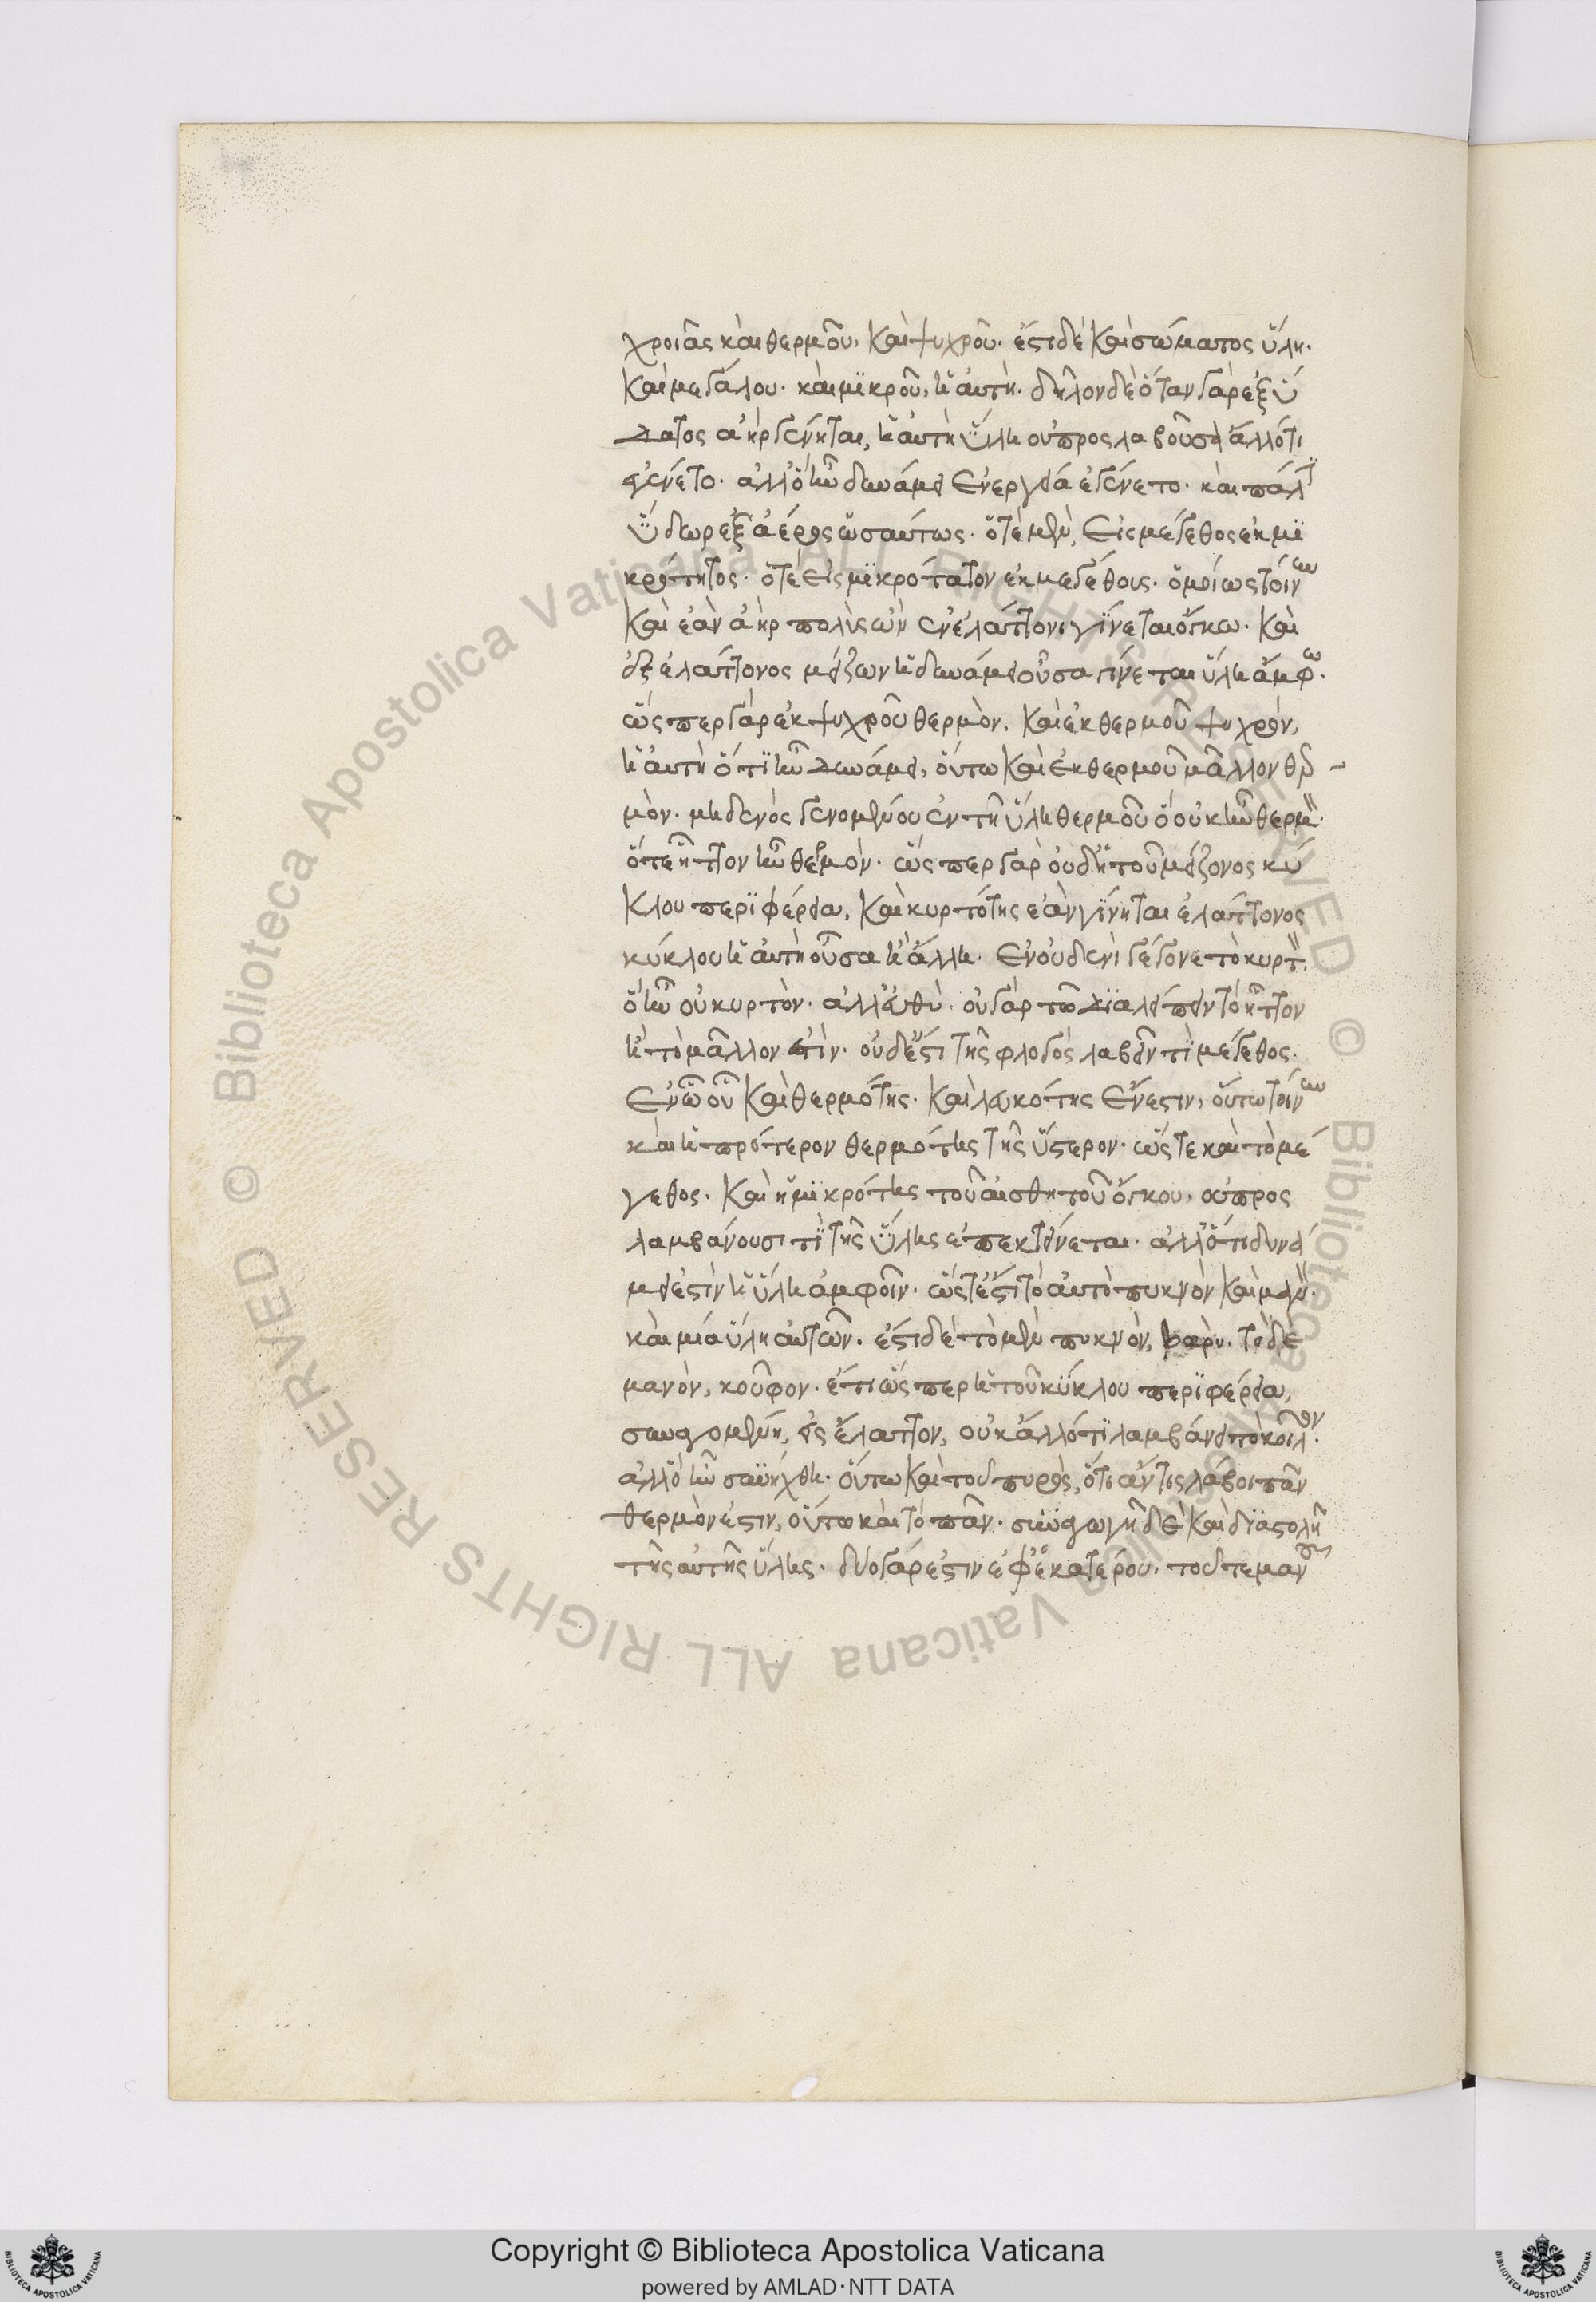 χροιᾶς καὶ θερμοῦ, καὶ ψυχροῦ. ἔστι δὲ καὶ σώματος ὕλη.
καὶ μεγάλου. καὶ μϊκροῦ, ἡ ἀυτὴ. δῆλον δὲ ὅταν γὰρ ἐξ ὕ
δατος ἀὴρ γένηται, ἡ ἀυτὴ ὕλη οὐ προςλαβοῦσα ἄλλό τι
ἐγένετο. ἀλλ' ὃ ἦν δυνάμει ἐνεργεία ἐγένετο. καὶ πάλϊ
ὕδωρ ἐξ ἀέρος ὡσαύτως. ὁτὲ μὲν, εἰς μέγεθος ἐκ μϊ
κρότητος. ὁτὲ εἰς μϊκρότατον ἐκ μεγέθους. ὁμοίως τοίνυν
καὶ ἐὰν ἀὴρ πολὺς ὢν ἐν ἐλάττονι γίνεται ὄγκω. καὶ
ἐξ ἐλάττονος μείζων ἡ δυνάμει οὖσα γίνεται ὕλη ἄμφω.
ὥςπερ γὰρ ἐκ ψυχροῦ θερμὸν, καὶ ἐκ θερμοῦ ψυχρὸν,
ἡ ἀυτὴ ὅτϊ ἦν δυνάμει, οὕτω καὶ ἐκ θερμοῦ μᾶλλον θερ-
μὸν. μηδενὸς γενομένου ἐν τῆ ὕλη θερμοῦ ὃ οὐκ ἦν θερμὸν.
ὅτε ἧττον ἦν θερμὸν. ὥςπερ γὰρ οὐδ' ἡ τοῦ μείζονος κύ
κλου περϊφέρεια, καὶ κυρτότης ἐὰν γίνηται ἐλάττονος
κύκλου ἡ ἀυτὴ οὖσα ἢ ἄλλη. ἐν οὐδενὶ γέγονε τὸ κυρτὸν.
ὃ ἦν οὐ κυρτὸν. ἀλλ' εὐθὺ. οὐ γὰρ τῶ διαλείπειν τὸ ἧττον
ἢ τὸ μᾶλλον ἐστὶν. οὐδ' ἔστι τῆς φλογὸς λαβεῖν τϊ μέγεθος.
ἐν ὧ οὐ καὶ θερμότης. καὶ λευκότης ἔνεστιν, οὕτω τοίνυν
καὶ ἡ πρότερον θερμότης τῆς ὕστερον. ὥςτε καὶ τὸ μέ
γεθος. καὶ ἡ μϊκρότης τοῦ αἰσθητοῦ ὄγκου, οὐ προς
λαμβάνουσι τϊ τῆς ὕλης ἐπεκτείνεται. ἀλλ' ὅτι δυνά
μει ἐστὶν ἡ ὕλη ἀμφοῖν. ὥςτ' ἔστι τὸ ἀυτὸ πυκνὸν καὶ μανὸν.
καὶ μία ὕλη ἀυτῶν. ἔστι δὲ τὸ μὲν πυκνὸν, βαρὺ. τὸ δὲ
μανὸν, κοῦφον. ἔτι ὥςπερ ἡ τοῦ κύκλου περϊφέρεια,
συναγομένη, εἰς ἔλαττον, οὐκ ἄλλό τϊ λαμβάνει τὸ κοῖλον.
ἀλλ' ὃ ἦν συνήχθη. οὕτω καὶ τοῦ πυρὸς, ὅτι ἄν τις λάβοι πᾶν
θερμὸν ἐστιν, οὕτω καὶ τὸ πᾶν. συναγωγῆ δὲ καὶ διαστολῆ
τῆς ἀυτῆς ὕλης. δύο γάρ ἐστιν ἐφ' ἑκατέρου. τοῦ τε μανοῦ